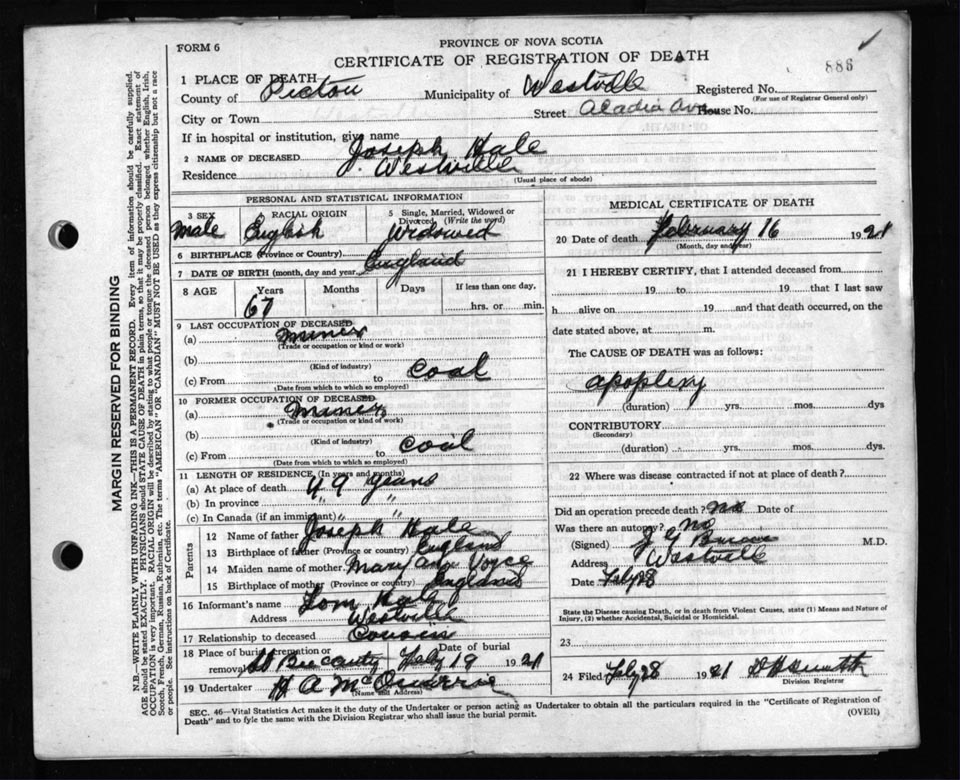 FORM 6
PROVINCE OF NOVA SCOTIA
CERTIFICATE OF REGISTRATION OF DEATH
886
1 PLACE OF DEATH
County of Pictou Municipality of Westville Registered No.
(For use of Registrar General only)
City or Town Street Acadia Ave House No.
If in hospital or institution, give name
2 NAME OF DECEASED Joseph Hale
Residence Westville
(Usual place of abode)
PERSONAL AND STATISTICAL INFORMATION
3 SEX Male
RACIAL ORIGIN English
5 Single, Married, Widowed or Divorced (Write the word) Widowed
6 BIRTHPLACE (Province or Country) England
7 DATE OF BIRTH (month, day and year)
8 AGE Years Months Days If less than one day,
67 hrs. or min.
9 LAST OCCUPATION OF DECEASED
(a) Miner
(Trade or occupation or kind or work)
(b) coal
(Kind of industry)
(c) From to
(Date from which to which so employed)
10 FORMER OCCUPATION OF DECEASED
(a) Miner
(Trade or occupation or kind or work)
(b) coal
(Kind of industry)
(c) From to
(Date from which to which so employed)
11 LENGTH OF RESIDENCE (In years and months)
(a) At place of death 49 years
(b) In province " "
(c) In Canada (if an immigrant) " "
Parents
12 Name of father Joseph Hale
13 Birthplace of father (Province or country) England
14 Maiden name of mother Mary Ann Voyce
15 Birthplace of mother (Province or country) England
16 Informant's name Tom Hale
Address Westville
17 Relationship to deceased Cousin
18 Place of burial, cremation or removal Date of burial
July 19 1921
19 Undertaker H A
(Name and Address)
MEDICAL CERTIFICATE OF DEATH
20 Date of death February 16 1921
(Month, day and year)
21 I HEREBY CERTIFY, that I attended deceased from
19 to 19 that I last saw
h alive on 19 and that death occurred, on
date stated above, at m.
The CAUSE OF DEATH was as follows:
apoplexy
(duration) yrs. mos. dys
CONTRIBUTORY
(Secondary)
(duration) yrs. mos. dys.
22 Where was disease contracted if not at place of death?
Did an operation precede death? No Date of
Was there an autopsy? No
(Signed) M.D.
Address Westville
Date Feby 28
State the Disease causing Death, or in death from Violent Causes, state (1) Means and Nature of
Injury, (2) whether Accidental, Suicidal or Homicidal.
23
24 Filed Feby 28 1921
Division Registrar
SEC. 46—Vital Statistics Act makes it duty of the Undertaker or person acting as Undertaker to obtain all the particulars required in the "Certificate of Registration of
Death" and to fyle same with the Division Registrar who shall issue the burial permit.
(OVER)
MARGIN RESERVED FOR BINDING
N.B.—WRITE PLAINLY WITH UNFADING INK—THIS IS A PERMANENT RECORD. Every item of information should be carefully supplied.
AGE should be stated EXACTLY. PHYSICIANS should STATE CAUSE OF DEATH in plain terms, so that it may be properly classified. Exact statement of
OCCUPATION is very important. RACIAL ORIGIN will be described by stating to what people or tongue the deceased person belonged, whether English, Irish,
Scotch, French, German, Russian, Ruthenian, etc. The terms "AMERICAN" OR "CANADIAN" MUST NOT BE USED as they express citizenship but not a race
or people. See instructions on back of Certificate.